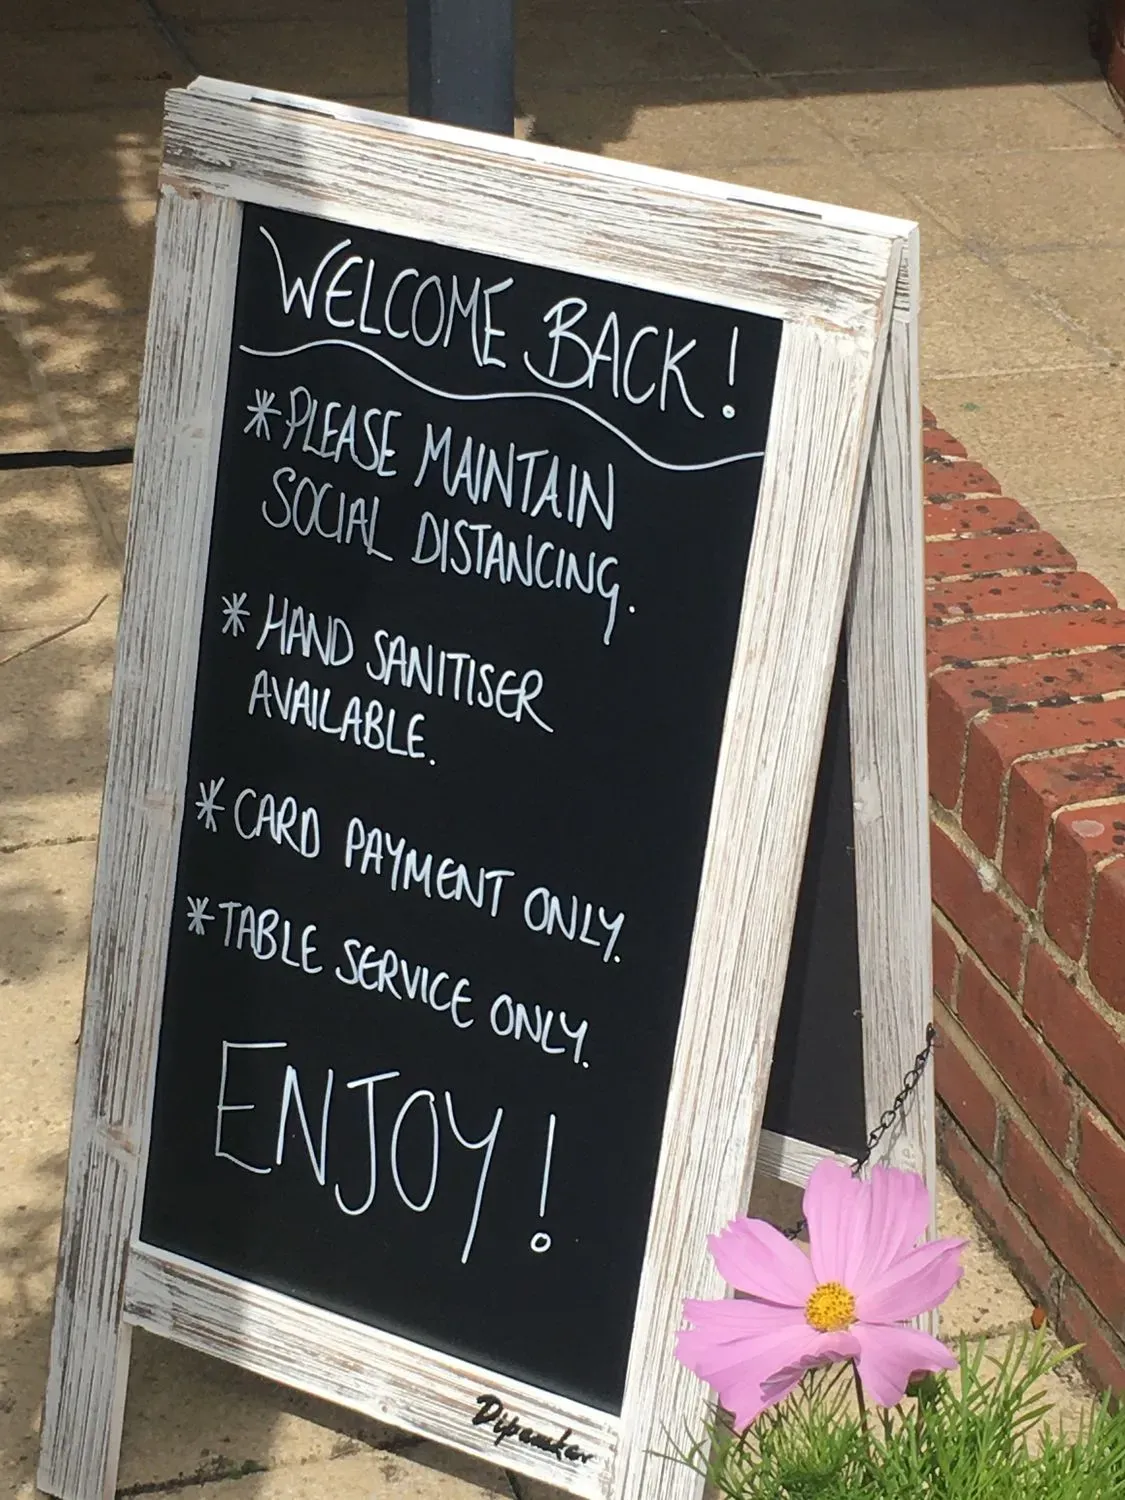 WELCOME BACK!
*PLEASE MAINTAIN
SOCIAL DISTANCING.
*HAND SANITISER
AVAILABLE.
*CARD PAYMENT ONLY.
*TABLE SERVICE ONLY.
ENJOY!